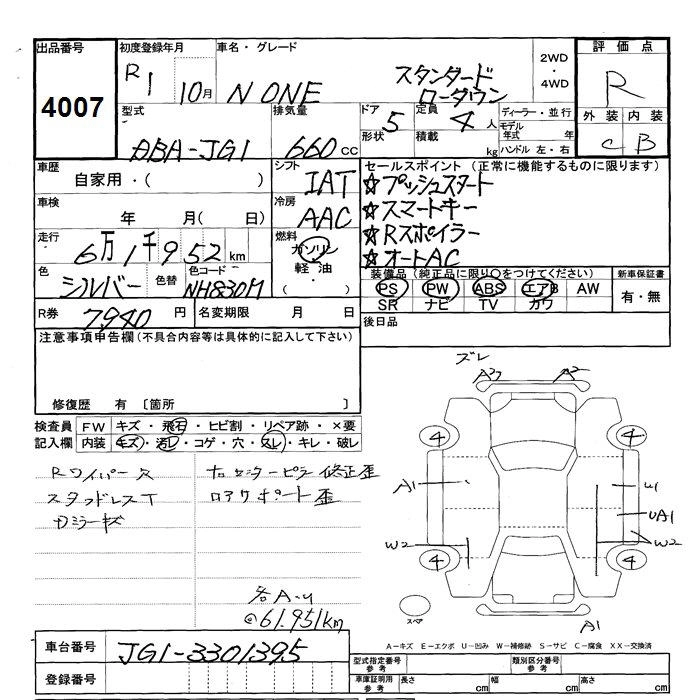 出品番号 初度登録年月 車名・グレード 2WD・4WD 評価点
4007 R1 10月 N ONE スタンダード ローダウン R
型式 排気量 ドア形状 定員 積載 ディーラー・並行 外装 内装
ABA-JG1 660cc 5 4人 kg モデル年式 年 ハンドル 左・右 C B
車歴 シフト セールスポイント (正常に機能するものに限ります)
自家用・( ) IAT ☆プッシュスタート
車検 冷房 ☆スマートキー
年 月( 日) AAC ☆Rスポイラー
走行 燃料 ☆オートAC
6万1千952km ガソリン 軽油 ・( )
色 色替 色コード 装備品(純正品に限り○をつけてください) 新車保証書
シルバー NH830M PS PW ABS エアB AW 有・無
SR ナビ TV カワ
R券 7,940円 名変期限 月 日 後日品
注意事項申告欄(不具合内容等は具体的に記入して下さい)
修復歴 有 〔箇所 〕
検査員 FW キズ・飛石・ヒビ割・リペア跡・×要
記入欄 内装 キズ・汚レ・コゲ・穴・スレ・キレ・破レ
Rワイパー欠
スタッドレスT
カミラーキズ
右センターピラー修正歪
ロアサポート歪
各A・U
@61,951km
ズレ
A3 A2
4 4
A1 U1
UA1
W2 W2
4 4
スペア
A1
A-キズ E-エクボ U-凹み W-補修跡 S-サビ C-腐食 XX-交換済
車台番号 JG1-3301395
登録番号
型式指定番号 参考 類別区分番号 参考
車庫証明用 参考 長さ cm 幅 cm 高さ cm